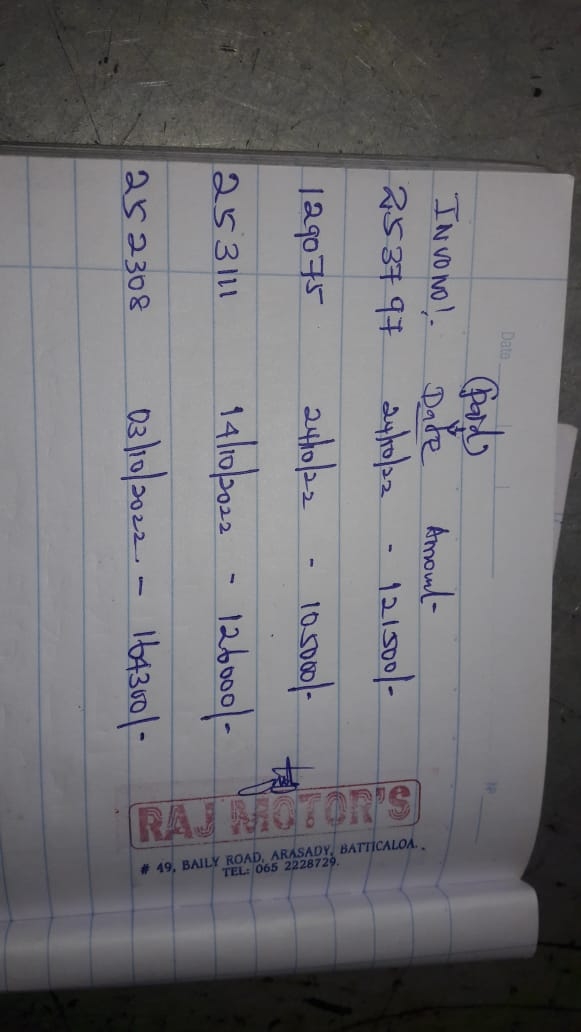 Date
No
(paid)
Invono!. Date Amount-
253797 24/10/22 - 121500/-
129075 24/10/22 - 105000/-
253111 14/10/2022 - 126000/-
252308 03/10/2022 - 164300/-
RAJ MOTOR'S
# 49, BAILY ROAD, ARASADY, BATTICALOA.
TEL: 065 2228729.